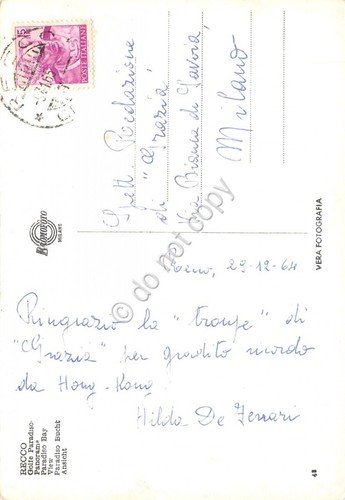 15
POSTE ITALIANE
Spett. Redazione
"Grazia"
di
Via Bianca di Savoia,
Milano
Bromofoto
MILANO
VERA FOTOGRAFIA
© do not copy
Recco, 29-12-64
Ringrazio la "troupe" di
"Grazia" per gradito ricordo
da Hong-Kong
Hilda De Ferrari
RECCO
Golfo Paradiso
Panorama
Paradiso Bay
View
Paradiso Bucht
Ansicht
48